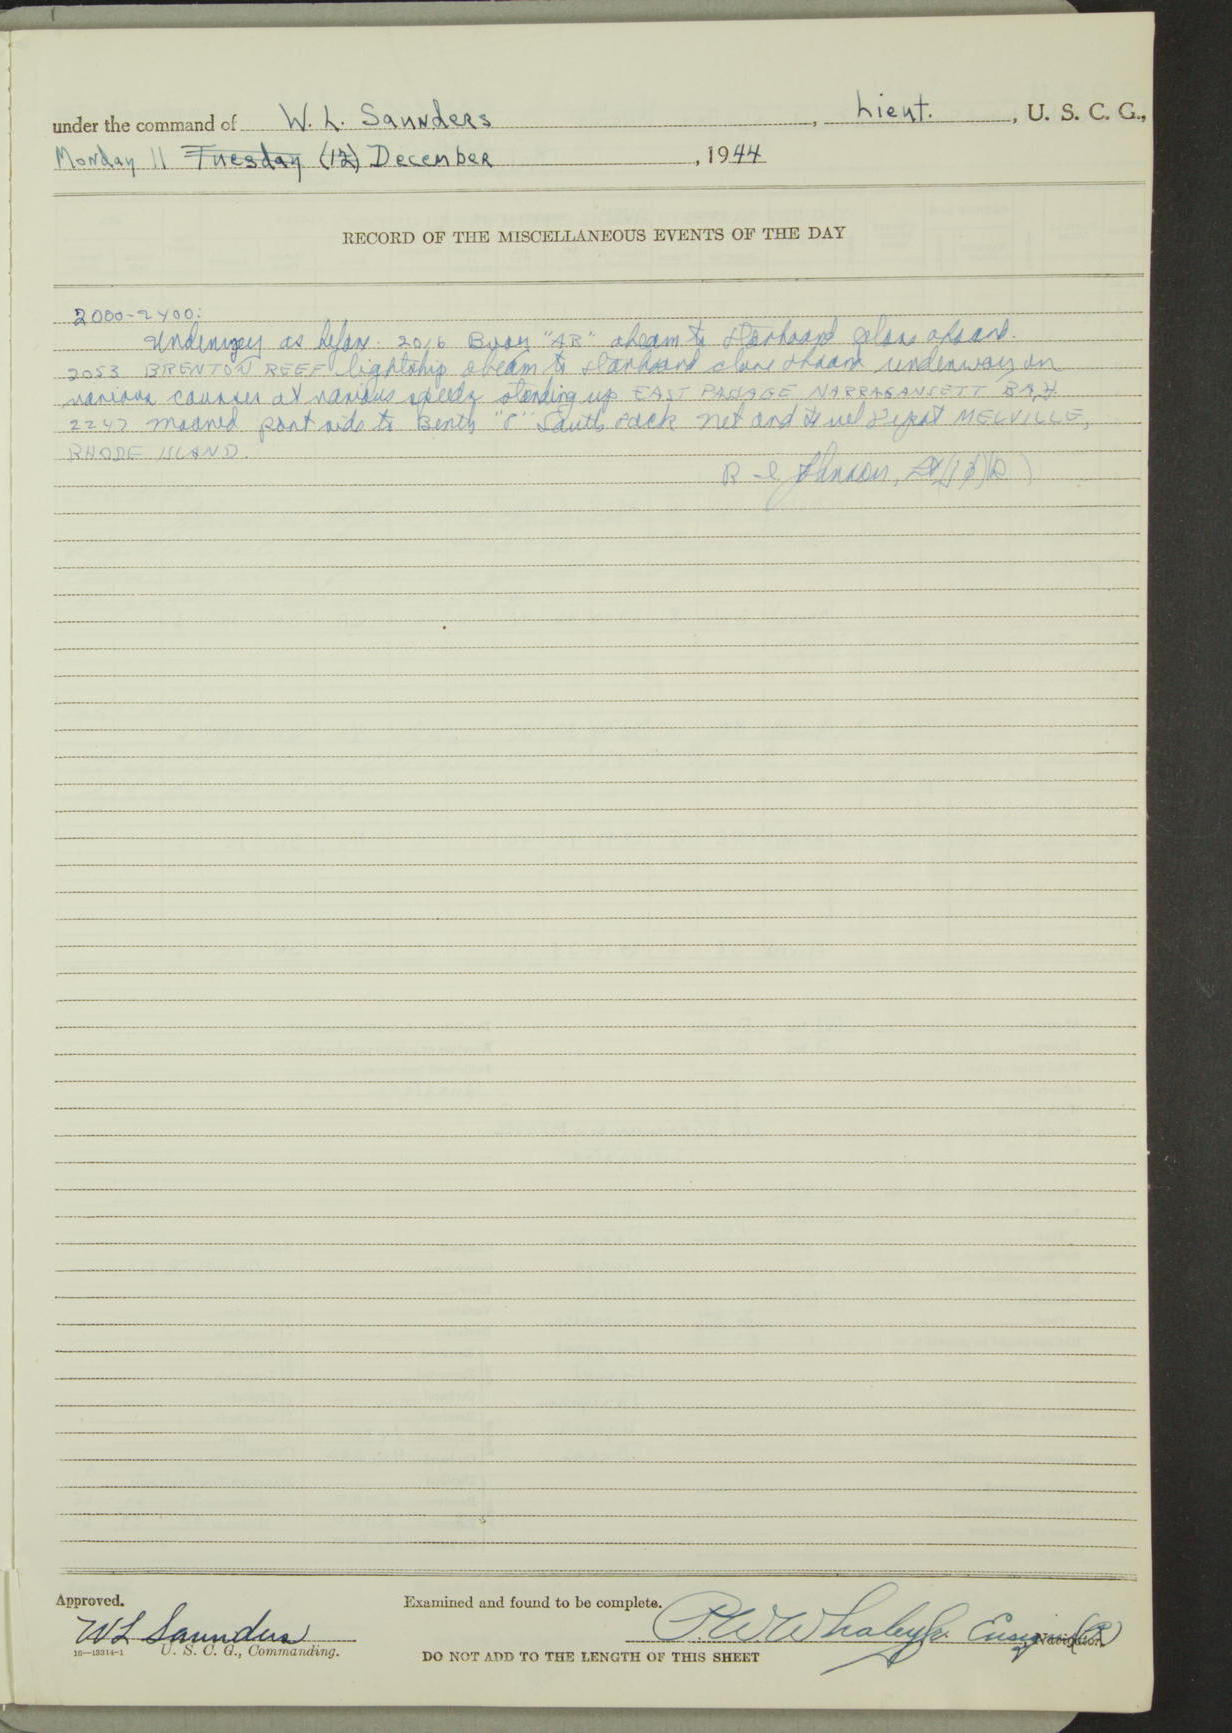 under the command of W. L. Saunders, Lieut., U. S. C. G.,
Monday 11 Tuesday (12) December, 1944
RECORD OF THE MISCELLANEOUS EVENTS OF THE DAY
2000-2400:
Underway as before. 2016 Buoy "AB" abeam to starboard close aboard.
2053 BRENTON REEF lightship abeam to starboard close aboard underway on
various courses at various speeds standing up EAST PASSAGE NARRAGANSETT BAY
2247 moored port side to Berth "C" South dock Net and Fuel Depot MELVILLE,
RHODE ISLAND.
Johnson,
Approved.
Examined and found to be complete.
WL Saunders
P.W. Whaley Jr. Ensign (R)
Navigator.
16—13314-1 U. S. C. G., Commanding.
DO NOT ADD TO THE LENGTH OF THIS SHEET